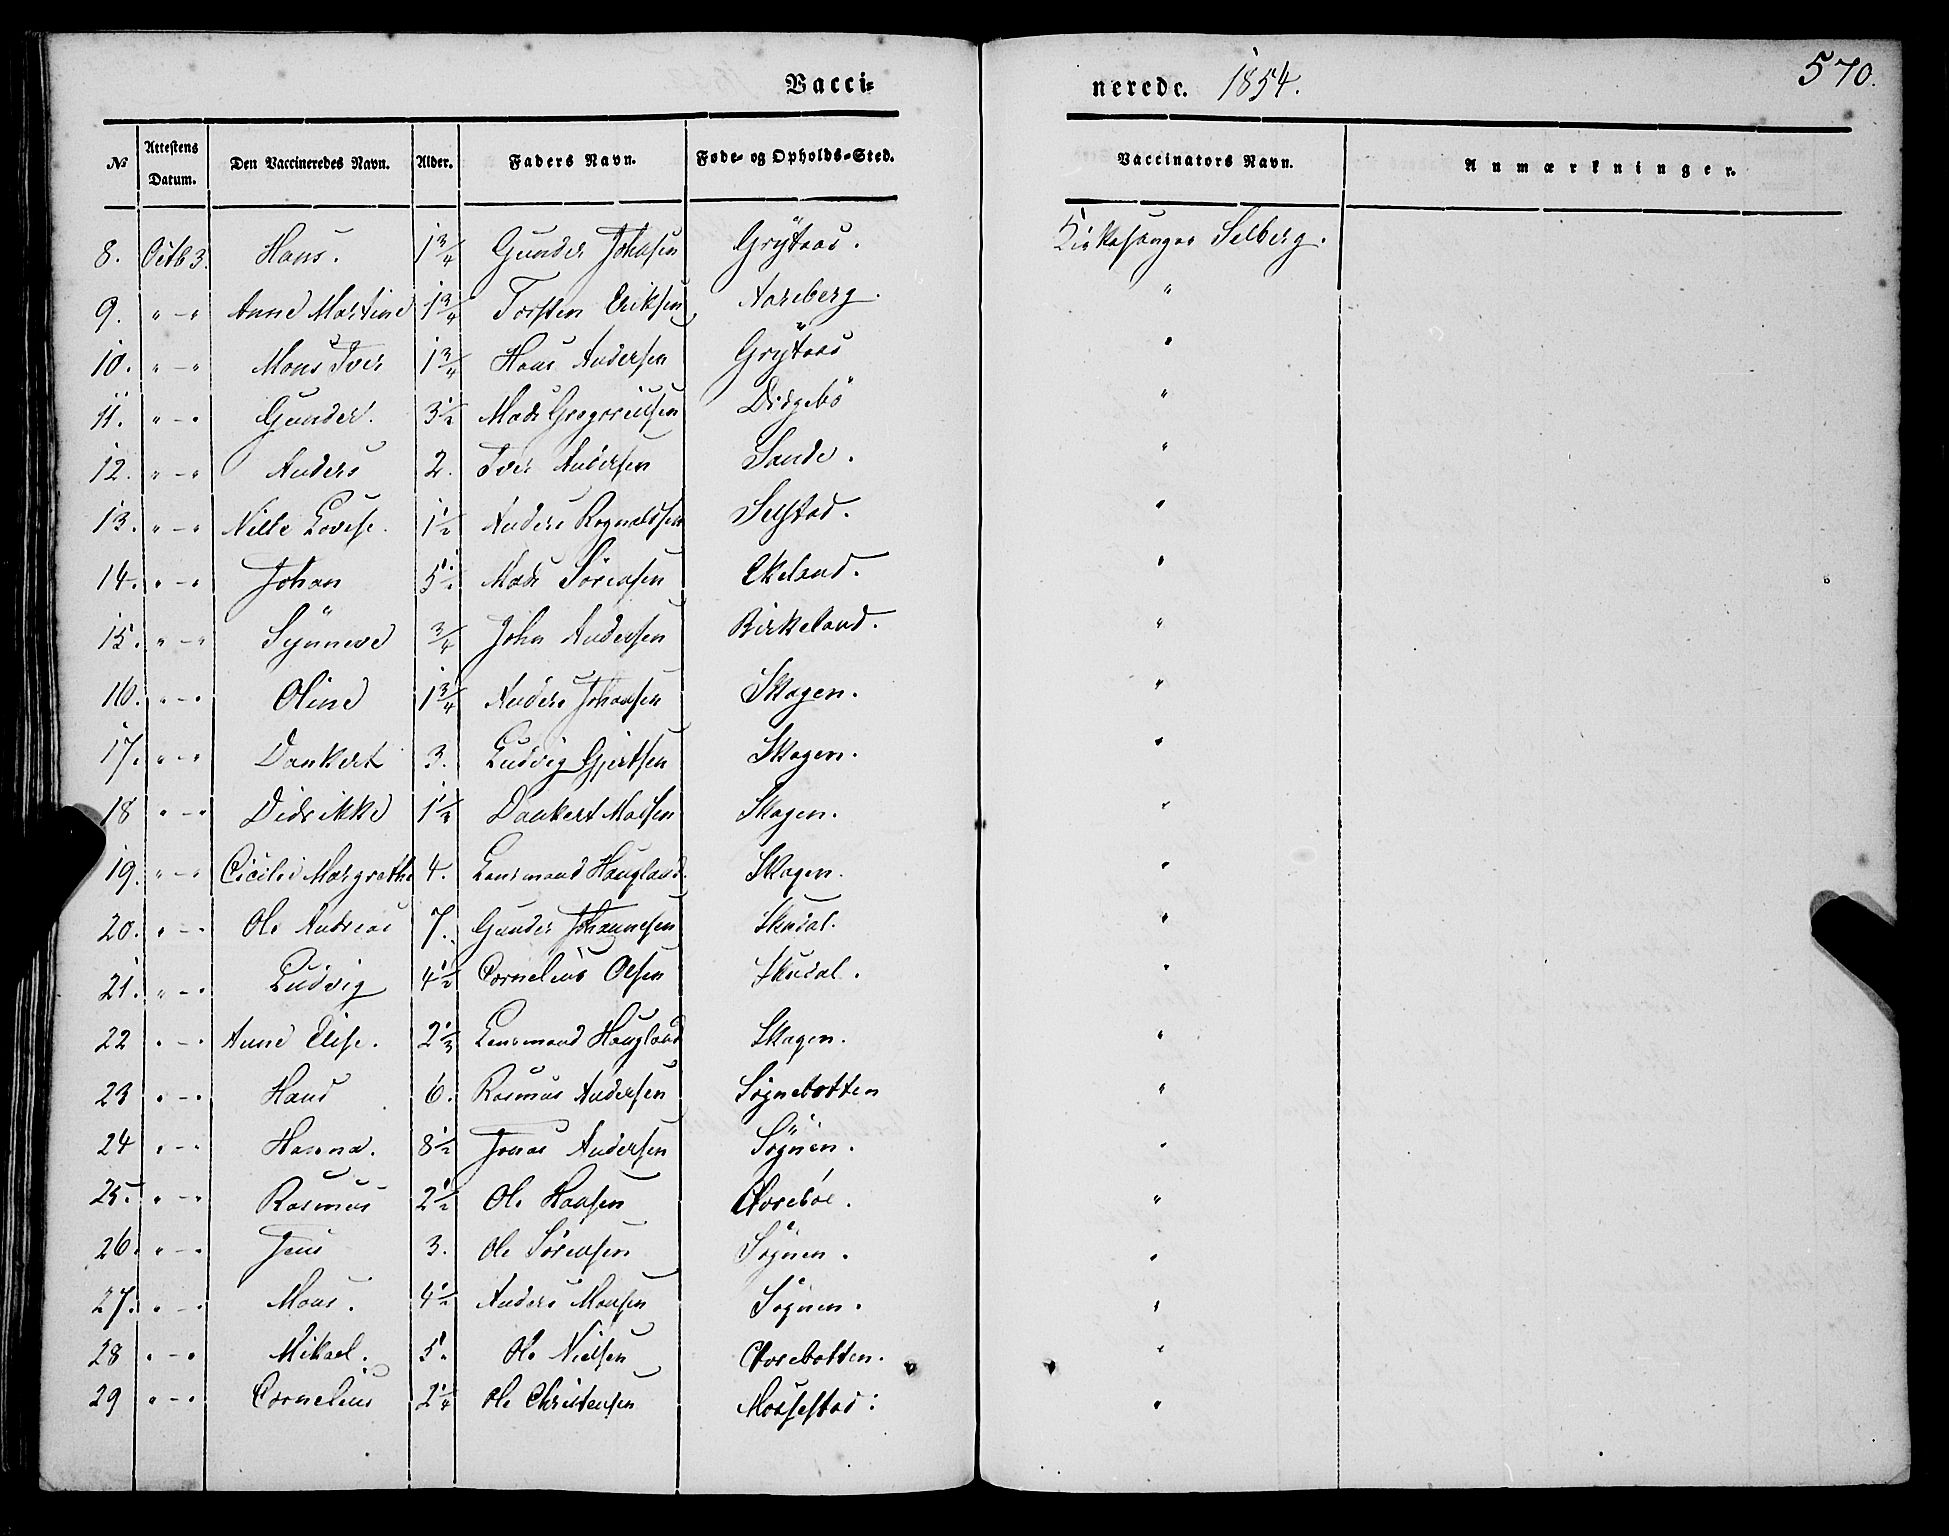 Vacci- nerede. 1854. 570.
№ Attestens Datum. Den Vaccineredes Navn. Alder. Faders Navn. Føde- og Opholds-Sted. Vaccinators Navn. Anmærkninger.
8. Octb 3. Hans. 1 3/4 Gunder Johnsen Grÿtaas. Kirkesanger Selberg.
9. " - " Anne Martine 1 3/4 Torsten Eriksen Aareberg. "
10. " - " Mons Iver 1 3/4 Hans Andersen Grÿtaas "
11. " - " Gunder. 3 1/2 Mads Gregoriussen "
12. " - " Anders 2. Iver Andersen Sande. "
13. " - " Nille Lovise. 1 1/2 Anders Rognaldsen Selstad. "
14. " - " Johan 5 1/2 Mads Sörensen Ekeland. "
15. " - " Synneve 3/4 John Andersen Birkeland. "
16. " - " Oline 1 3/4 Anders Johansen Skagen. "
17. " - " Dankert 3. Ludvig Gjertsen Skagen. "
18 " - " Didrikke 1 1/2 Dankert Skagen. "
19. " - " Margrethe 4. Lensmand Haugland. Skagen. "
20. " - " Ole Andreas 7. Gunder Johannesen Skudal. "
21. " - " Ludvig 4 1/2 Cornelius Olsen Skudal. "
22 " - " Anne Elise. 2 1/3 Lensmand Haugland Skagen. "
23 " - " Hans 6. Rasmus Andersen Sognebotten "
24 " - " Hanna. 8 1/2 Jonas Andersen Sögnen. "
25. " - " Rasmus 2 1/2 Ole Hansen "
26. " - " Jens 3. Ole Sörensen Sognen. "
27. " - " Mons. 4 1/2 Anders Monsen Sognen. "
28 " - " Mikael. 5. Ole Nielsen "
29 " - " Cornelius 2 1/4 Ole Christensen "